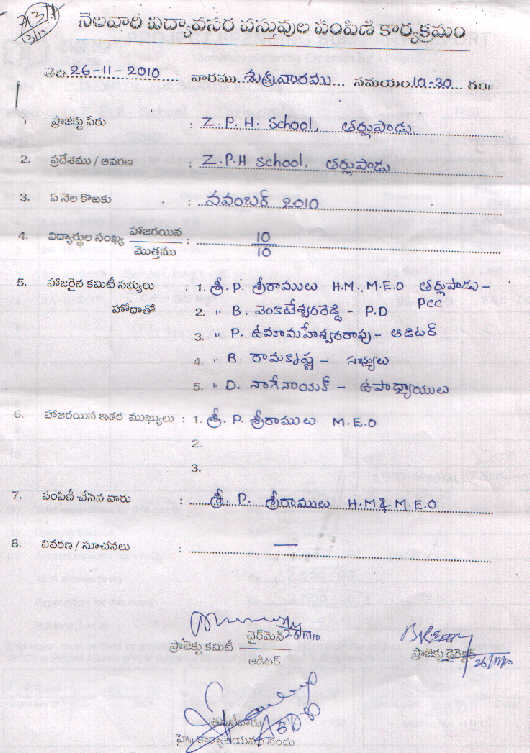 నెలవారి విద్యావసర వస్తువుల పంపిణి కార్యక్రమం
తేది 26-11-2010 వారము శుక్రవారము సమయం 10-30 గం
1. ప్రాజెక్టు పేరు : Z.P.H. School, తర్లుపాడు
2. ప్రదేశము / ఆవరణ : Z.P.H School, తర్లుపాడు
3. ఏ నెల కొఱకు : నవంబర్ 2010
4. విద్యార్థుల సంఖ్య హాజరయిన : 10
మొత్తము 10
5. హాజరైన కమిటీ సభ్యులు : 1. శ్రీ. P. శ్రీరాములు H.M., M.E.O తర్లుపాడు -
హోదాతో PCC
2. " B. వెంకటేశ్వరరెడ్డి - P.D
3. " P. ఉమామహేశ్వరరావు - ఆడిటర్
4. " B రామకృష్ణ - సభ్యులు
5. " D. నాగేనాయక్ - ఉపాధ్యాయులు
6. హాజరయిన ఇతర ముఖ్యులు : 1. శ్రీ. P. శ్రీరాములు M.E.O
2.
3.
7. పంపిణీ చేసిన వారు : శ్రీ. P. శ్రీరాములు H.M & M.E.O
8. వివరణ / సూచనలు : —
ప్రాజెక్టు కమిటీ ఛైర్మెన్
ఆడిటర్
ప్రాజెక్టు డైరెక్టర్
26/11/10